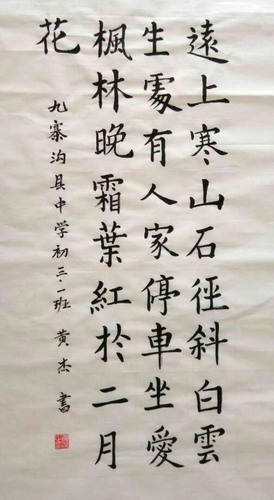 遠上寒山石徑斜白雲
生處有人家停車坐愛
楓林晚霜葉紅於二月
花
九寨沟县中学初三·一班 黄杰書